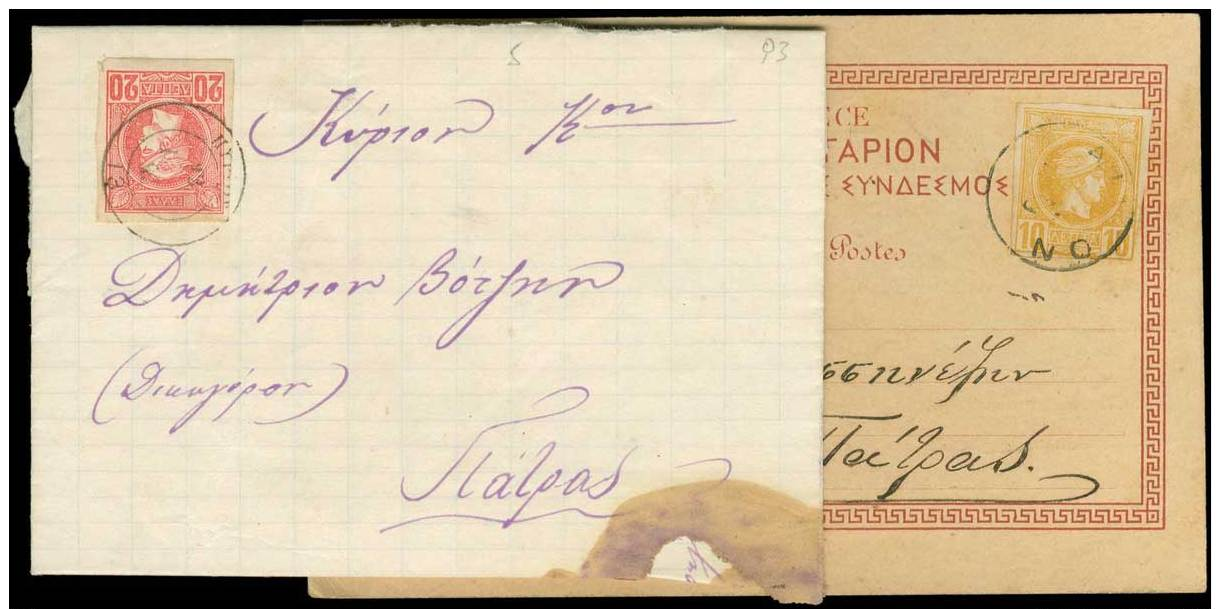 5 93
20 ΛΕΠΤΑ 20
ΕΛΛΑΣ
Κύριον Κον
Δημήτριον Βότσην
(Δικηγόρον)
Πάτρας
ECE
ΤΑΡΙΟΝ
Σ ΣΥΝΔΕΣΜΟΣ
Postes
10 ΛΕΠΤΑ 10
ΝΟ
Πάτρας.